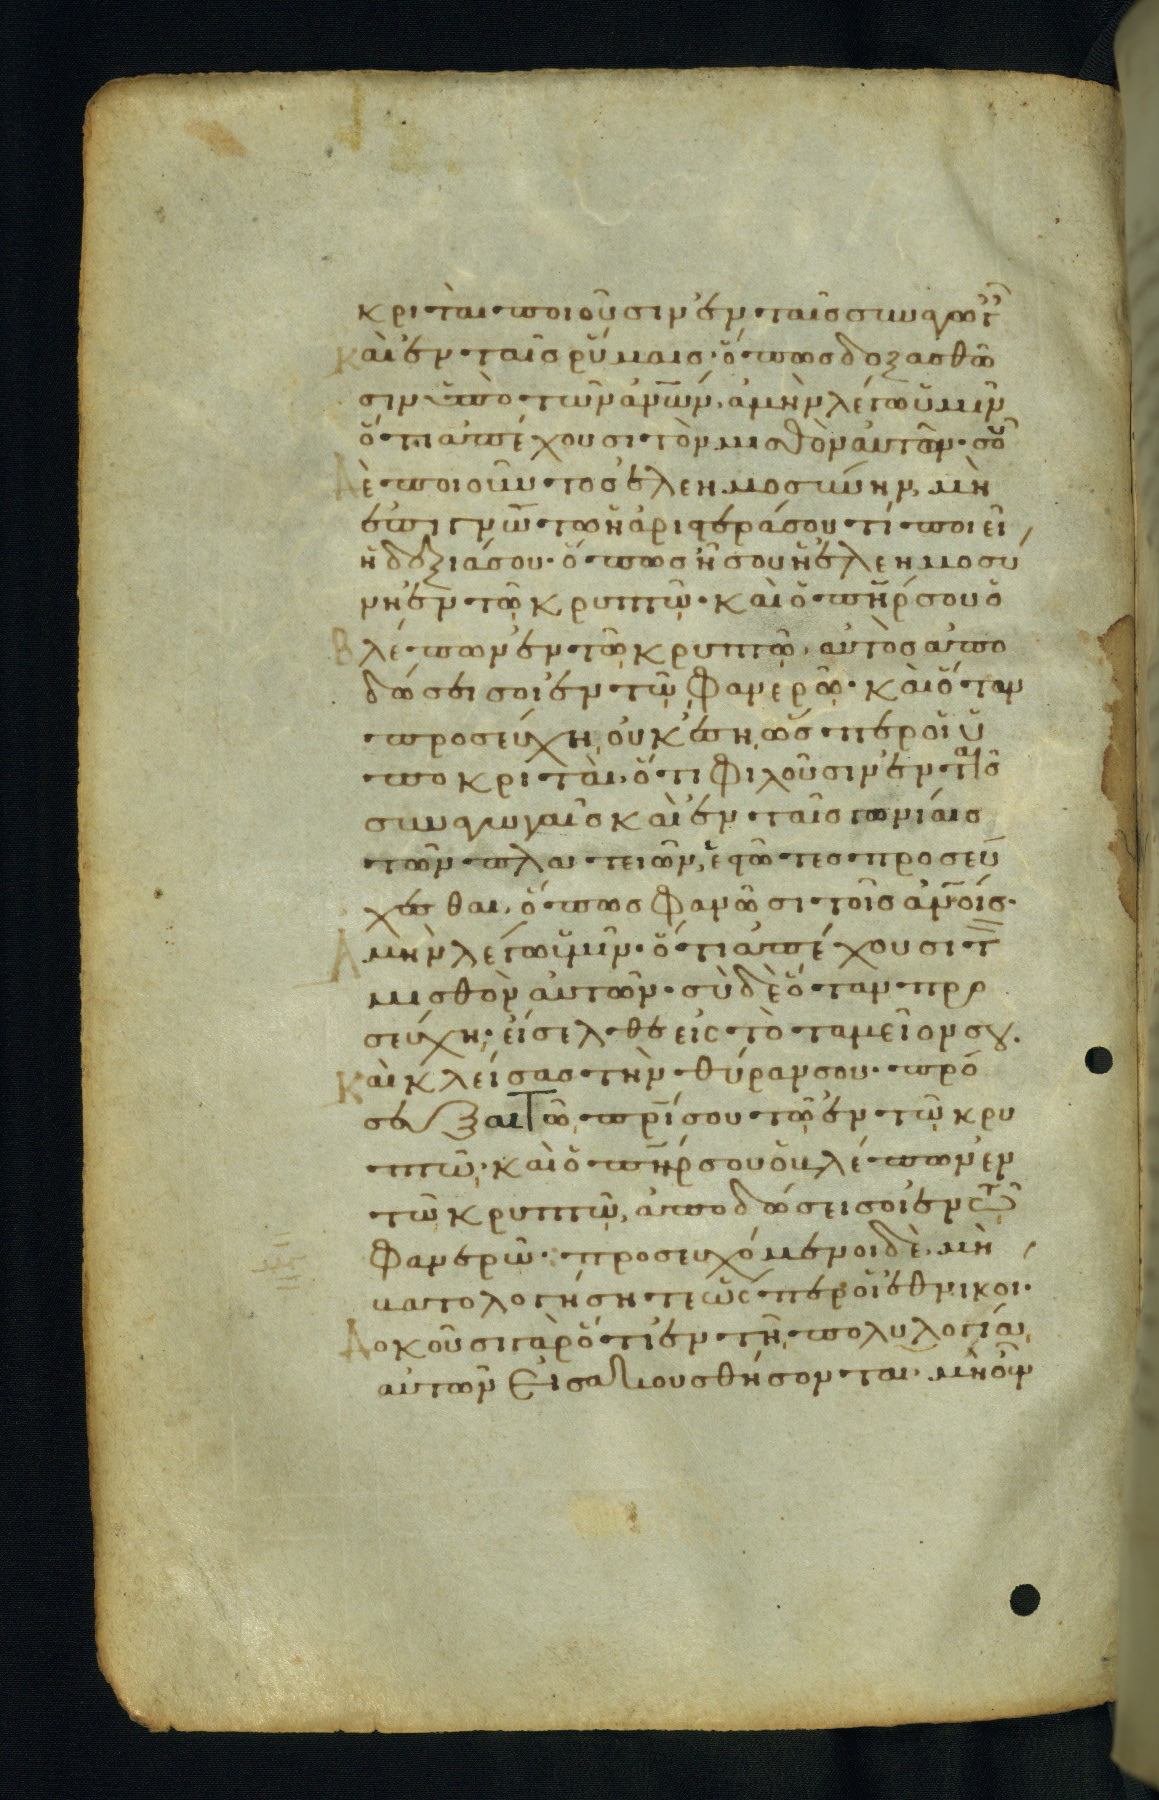 κριταὶ ποιοῦσιν ἐν ταῖς συναγω̂̂τ̂
καὶ ἐν ταῖς ῥύμαις· ὅπως δοξασθῶ
σιν ὑπὸ τῶν ἀν̅ω̅ν, ἀμὴν λέγω ὑμῖν
ὅτι ἀπέχουσι τὸν μισθὸν αὐτῶν· σοῦ
δὲ ποιοῦντος ἐλεημοσύνην, μὴ
ἐπιγνῶτω ἡ ἀριστεράσου τί ποιεῖ
ἡ δεξιάσου· ὅπως ἦ σου ἡ ἐλεημοσύ
νη ἐν τῶ κρυπτῶ· καὶ ὁ π̅η̅ρ σου ὁ
βλέπων ἐν τῶ κρυπτῶ, αὐτὸς ἀπο
δώσει σοι ἐν τῶ φανερῶ· καὶ ὅταν
προσεύχη, οὐκ ἔση ὥσπερ οἱ ὑ
ποκριταὶ, ὅτι φιλοῦσιν ἐν ταῖς
συναγωγαῖς καὶ ἐν ταῖς γωνίαις
τῶν πλατειῶν, ἑστῶτες προσεύ
χεσθαι, ὅπως φανῶσι τοῖς ἀν̅οις·
ἀμὴν λέγω ὑμῖν· ὅτι ἀπέχουσι τ̅
μισθὸν αὐτῶν· σὺ δὲ ὅταν προ
σεύχη· εἴσελθε εἰς τὸ ταμεῖον σου.
καὶ κλείσας τὴν θύραν σου· πρό
σευξαι τῶ π̅ρ̅ι σου τῶ ἐν τῶ κρυ
πτῶ· καὶ ὁ π̅η̅ρ σου ὁ βλέπων ἐν
τῶ κρυπτῶ, ἀποδώσει σοι ἐν τῶ
φανερῶ· προσευχόμενοι δὲ, μὴ
βατολογήσητε ὥσπερ οἱ ἐθνικοι·
δοκοῦσι γὰρ ὅτι ἐν τῆ πολυλογία
αὐτῶν εἰσακουσθήσονται· μὴ οὖν